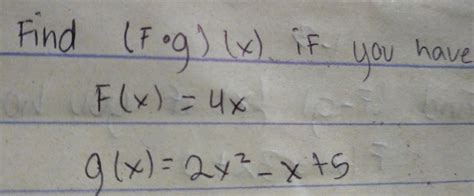 Find (F∘g)(x) if you have
F(x) = 4x
g(x) = 2x² - x + 5